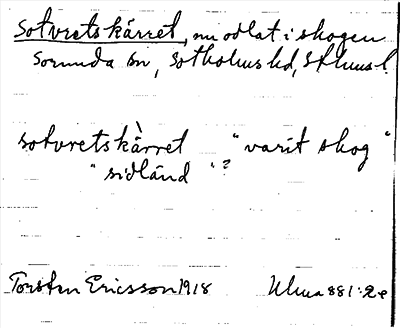 Sotvretskärret, nu odlat i skogen
Sorunda sn, Sotholms hd, Sthms l.
sotvretskàrret "varit skog"
"sidländ"?
Torsten Ericsson 1918 Ulma 881:2e